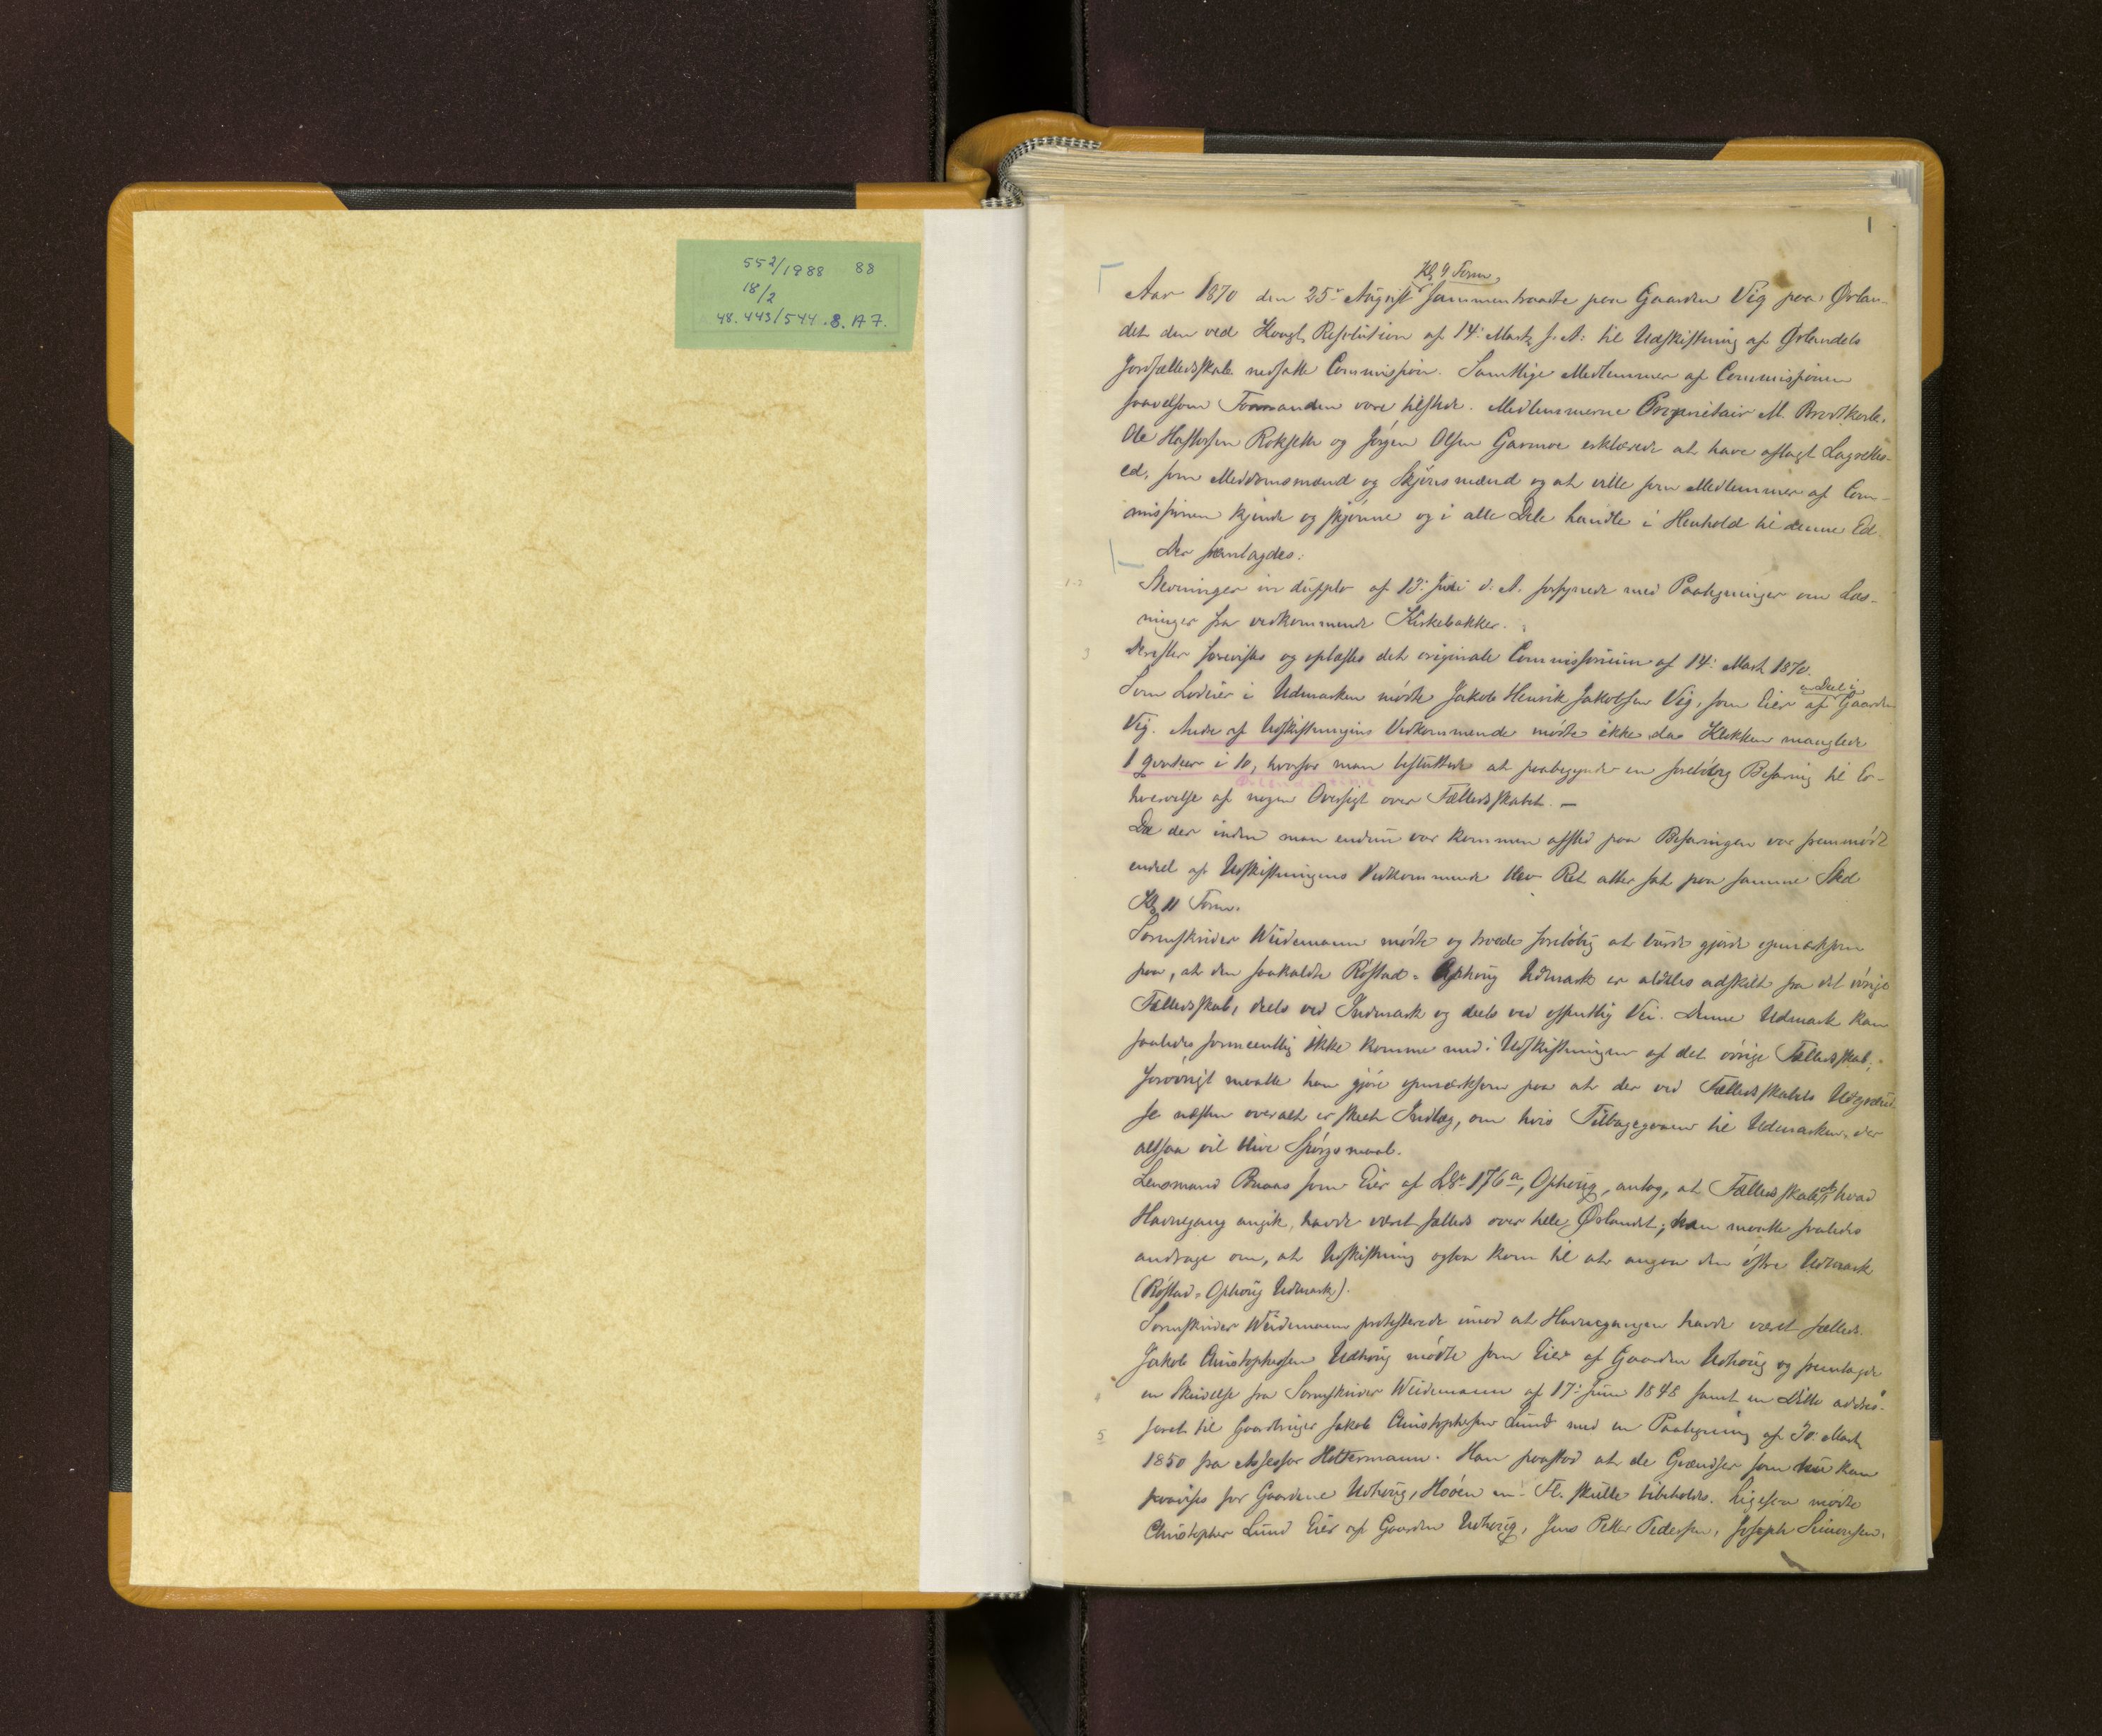 552/1988 88
18/2
48.443/544.8. A7.
1
Kl 9 Form.
Aar 1870 den 25de August sammentraadte paa Gaarden Vig paa Ørlan-
det den ved Kongl. Resolution af 14: Marts f. A: til Udskiftning af Ørlandets
Jordfælledsskab nedsatte Commission. Samtlige Medlemmer af Commissionen
saavelsom Formanden vare tilstede. Medlemmerne Proprietair M. Brodtkorb,
Ole Rokseth og Jørgen Olsen Garmoe erklærede at have aflagt Lagrettes-
ed, som Meddomsmænd og Skjønsmænd og at ville som Medlemmer af Com-
missionen kjende og skjønne og i alle Dele handle i Henhold til denne Ed.
Der fremlagdes:
1-2 Stevninger in duplo af 13: Juli d: A. forsynede med Paategninger om Læs-
ninger fra vedkommende Kirkebakker.
3 Derefter forevistes og oplæstes det originale Commissorium af 14: Marts 1870.
Som Lodeier i Udmarken mødte Jakob Henrik Jakobsen Vig, som Eier af en Deel i Gaarden
Vig. Andre af Udskiftningens Vedkommende mødte ikke, da Klokken manglede
1 qvarteer i 10, hvorfor man besluttede at paabegynde en foreløbig Befaring til Er-
hvervelse af nogen Oversigt over Fælledsskabet. —
Da der inden man endnu var kommen afsted paa Befaringen var fremmødt
endeel af Udskiftningens Vedkommende blev Ret atter sat paa samme Sted
Kl 11 Form.
Sorenskriver Weidemann mødte og troede foreløbig at burde gjøre opmærksom
paa, at den saakaldte Røstad-Ophoug Udmark er aldeles adskilt fra det øvrige
Fælledsskab, deels ved Indmark og deels ved offentlig Vei. Denne Udmark kan
saaledes formeentlig ikke komme med i Udskiftningen af det øvrige Fælledsskab;
forøvrigt maatte han gjøre opmærksom paa at der ved Fælledsskabets
næsten overalt er skeet Indlæg, om hvis Tilbagegaaen til Udmarken der
altsaa vil blive Spørgsmaal.
Lensmand Braas som Eier af L№ 176a, Ophoug, antog, at Fælledsskabet, hvad
Havnegang angik, havde været fælleds over hele Ørlandet; han maatte saaledes
andrage om, at Udskiftning ogsaa kom til at angaa den østre Udmark
(Røstad-Ophoug Udmark).
Sorenskriver Weidemann protesterede imod at Havnegangen havde været fælleds.
Jakob Christophersen Udhoug mødte som Eier af Gaarden Udhoug og fremlagde
4 en Skrivelse fra Sorenskriver Weidemann af 17: Juni 1848 samt en Ditto addres-
5 seret til Gaardbruger Jakob Christophersen Lund med en Paategning af 30: Marts
1850 fra Assessor Hottermann. Han paastod at de Grændser som nu kan
paavises for Gaardene Udhoug, Hoøen m: Fl. skulle bibeholdes. Ligesaa mødte
Christopher Lund Eier af Gaarden Udhoug, Jens Petter Pedersen, Joseph Simonsen,